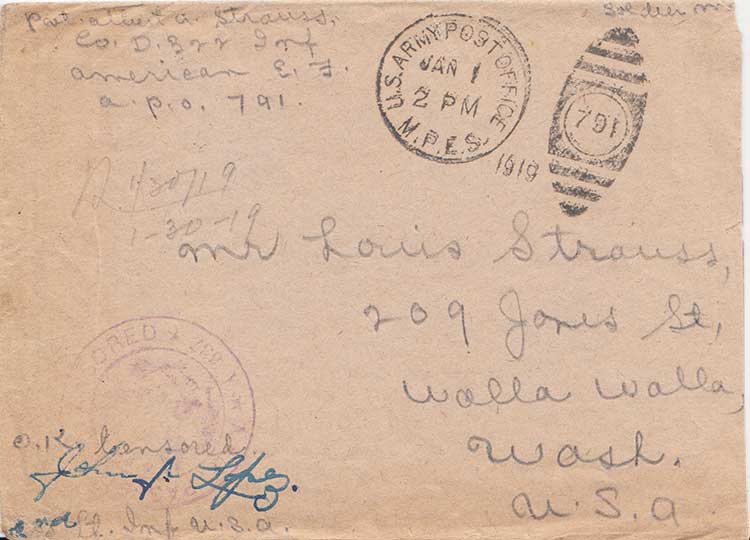 Pvt. Albert A. Strauss,
Co. D. 322 Inf
American E. F.
a. p. o. 791.
Soldier
U.S. ARMY POST OFFICE
JAN 1
2 PM
M.P.E.S.
1919
791
R 1/30/19
1-30-19
Mr Louis Strauss,
209 Jones St,
Walla Walla,
Wash.
U.S.A
O.K. Censored
Lopez.
2nd Lt. Inf U.S.A.